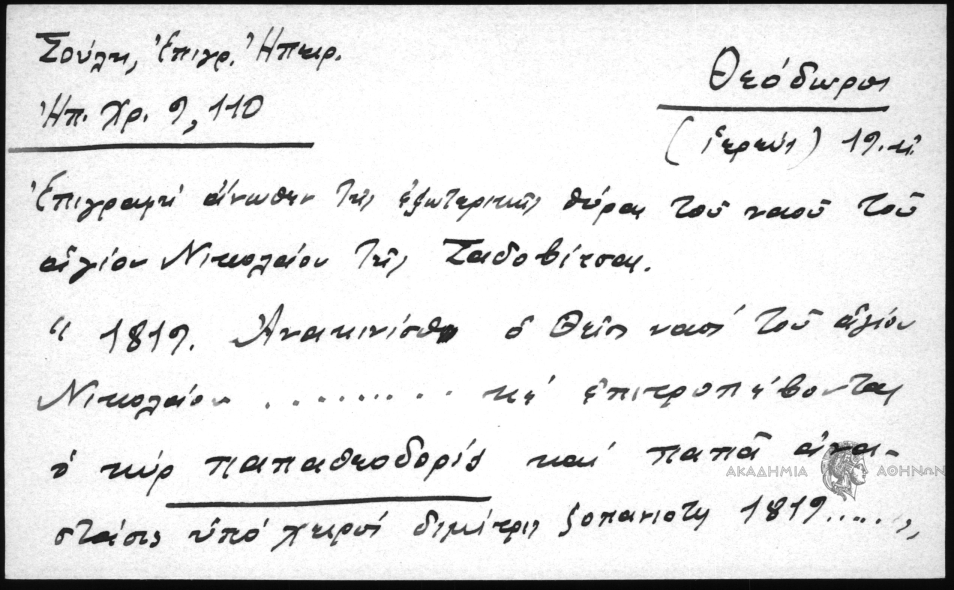 Σούλη, Ἐπιγρ. Ἠπειρ.
Ἠπ. Χρ. 9, 110
Θεόδωρος
(ἱερεύς) 19. αἰ.
Ἐπιγραφή ἄνωθεν τῆς ἐξωτερικῆς θύρας τοῦ ναοῦ τοῦ
ἁγίου Νικολάου τῆς Σαδοβίτσας.
“ 1819. Ἀνακινίσθη ὁ θεῖος ναός τοῦ ἁγίου
Νικολάου .......... κὲ ἐπιτροπέβοντας
ὁ κύρ παπαθεοδορίς καί παπᾶ ἀνα-
στάσις ὑπό χειρός διμίτρις ξοπανιοτη 1819.....,,
ΑΚΑΔΗΜΙΑ ΑΘΗΝΩΝ